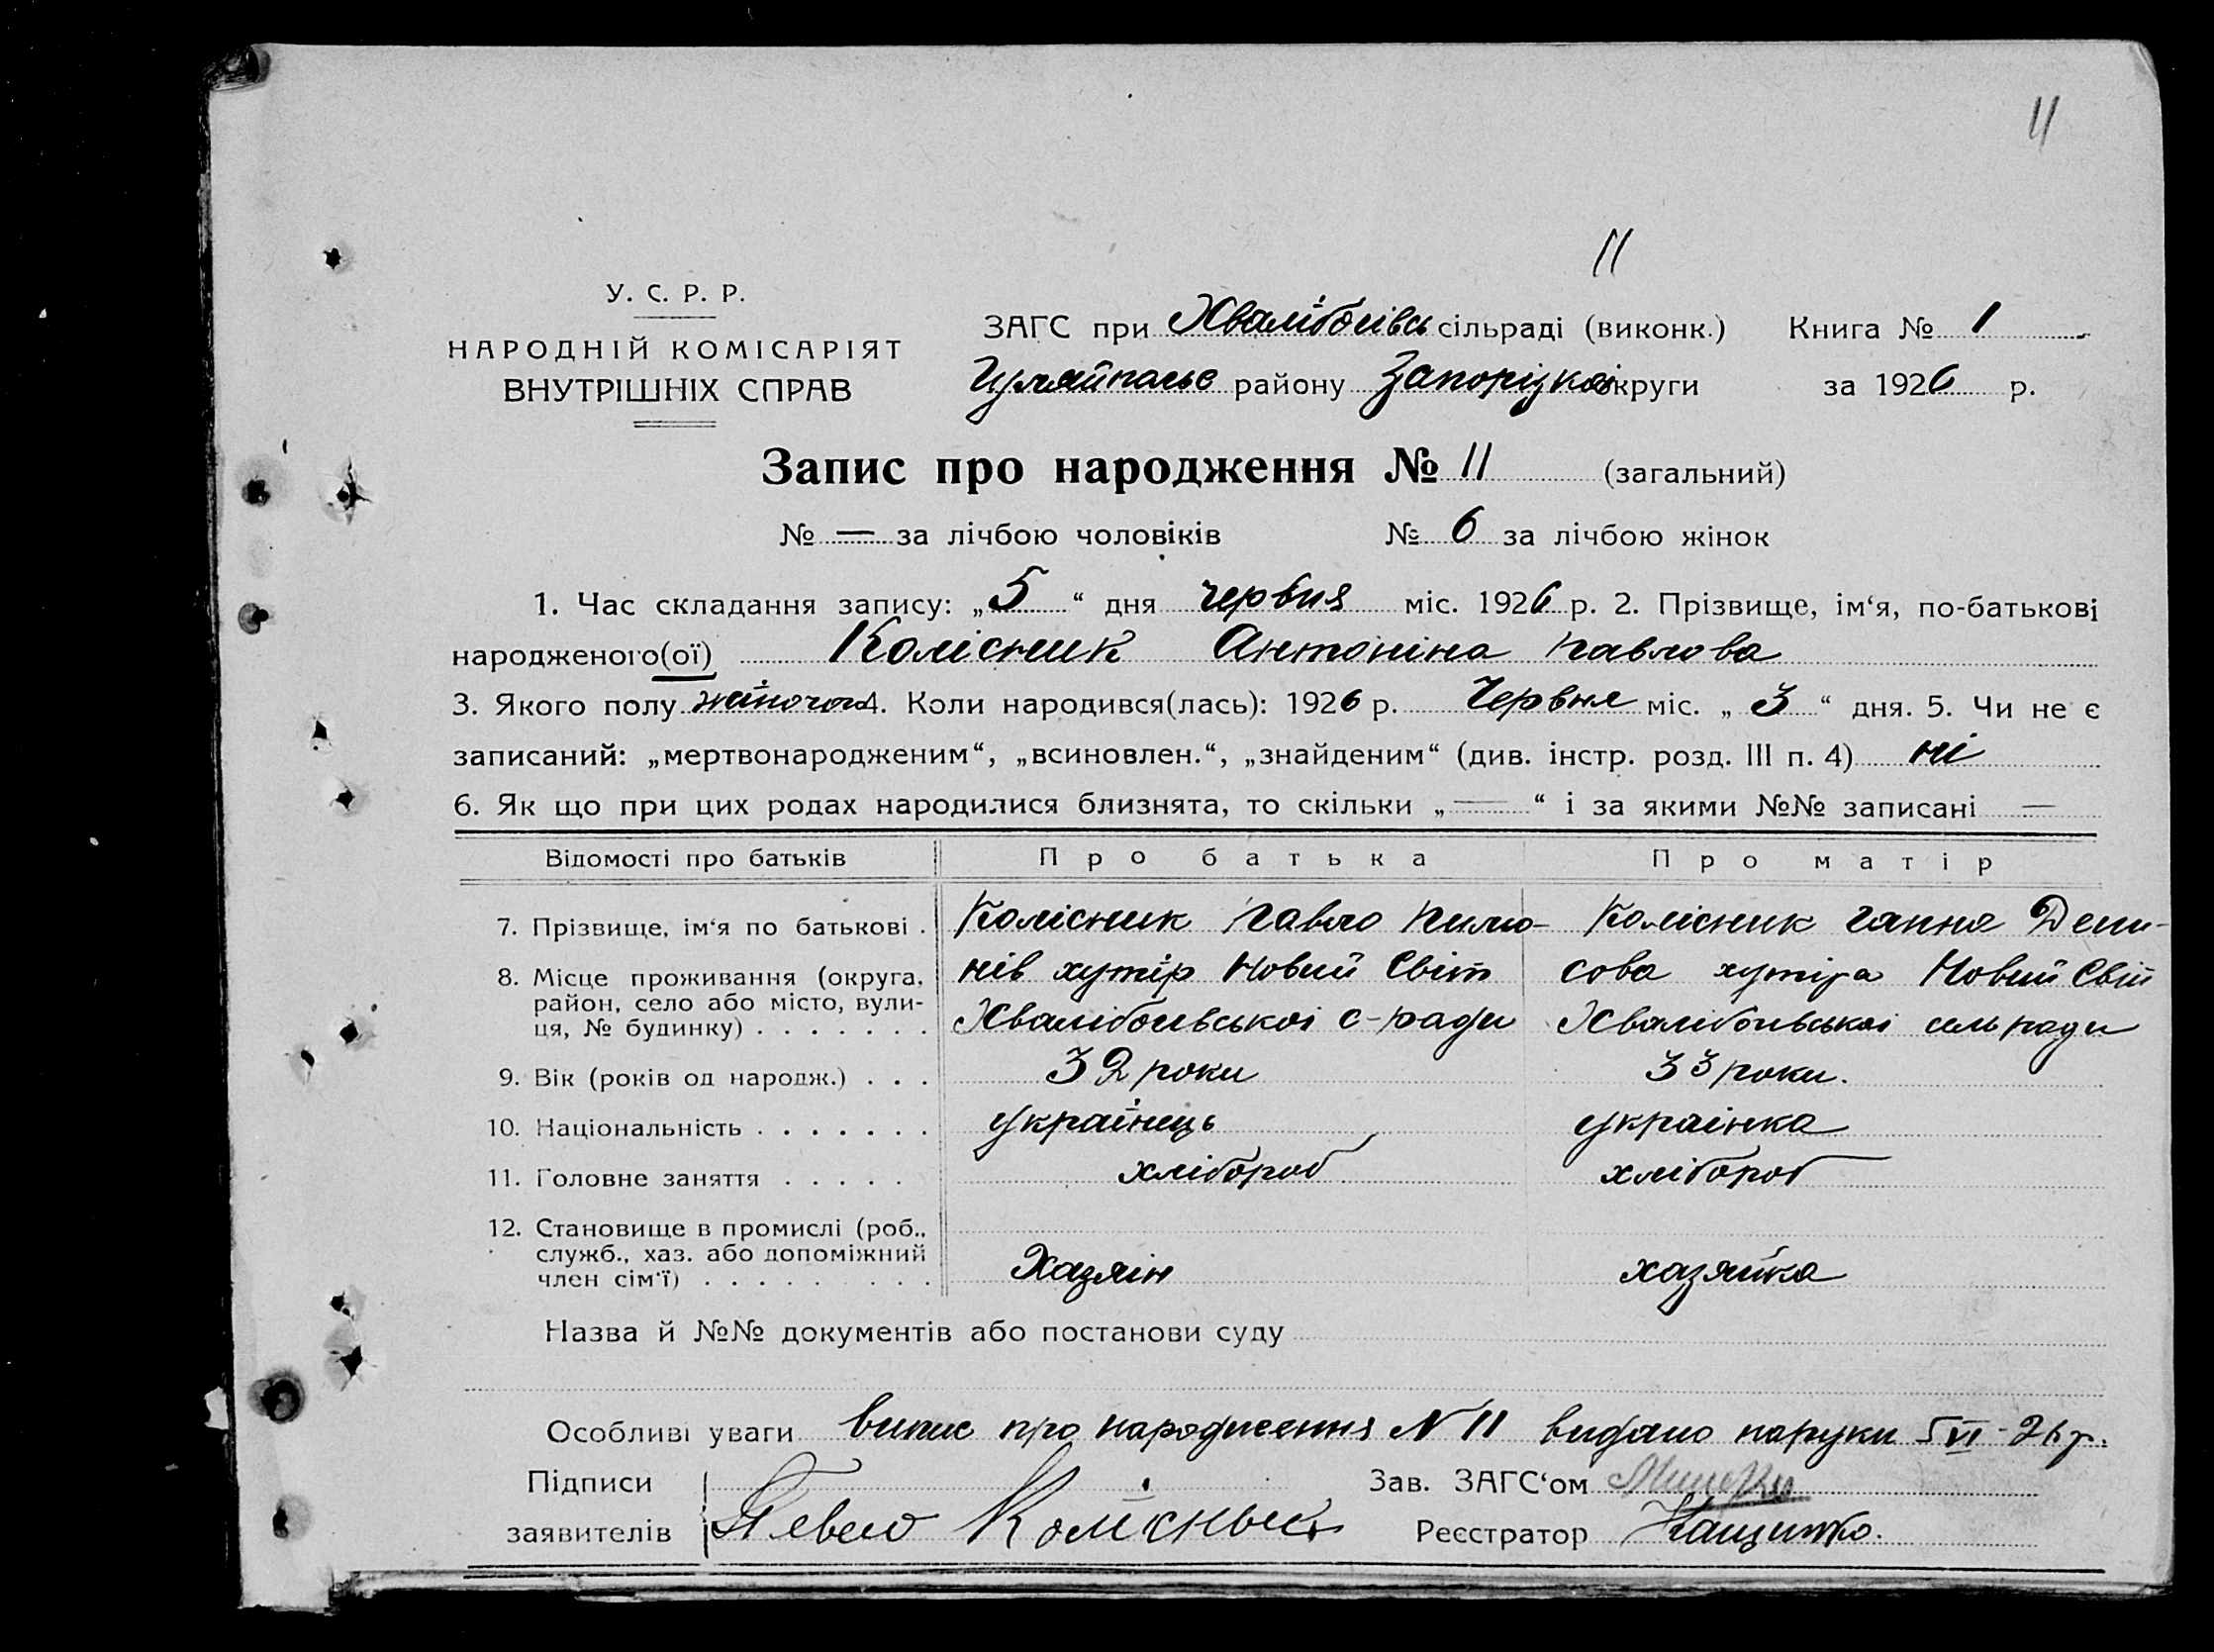 11
11
У. С. Р. Р.
НАРОДНІЙ КОМІСАРІЯТ
ВНУТРІШНІХ СПРАВ
ЗАГС при Хвалібоівсь сільраді (виконк.) Книга № 1
району Запорізкої округи за 1926 р.
Запис про народження № 11 (загальний)
№ — за лічбою чоловіків № 6 за лічбою жінок
1. Час складання запису: „5“ дня червня міс. 1926 р. 2. Прізвище, ім‘я, по-батькові
народженого(ої) Колісник Антоніна Павлова
3. Якого полу жіночого 4. Коли народився(лась): 1926 р. Червня міс. „3“ дня. 5. Чи не є
записаний: „мертвонародженим“, „всиновлен.“, „знайденим“ (див. інстр. розд. III п. 4) ні
6. Як що при цих родах народилися близнята, то скільки „—“ і за якими №№ записані —
Відомості про батьків Про батька Про матір
7. Прізвище, ім‘я по батькові . Колісник Павло Пили- Колісник Ганна Дени-
8. Місце проживання (округа, нів хутір Новий Світ сова хутіра Новий Світ
район, село або місто, вули-
ця, № будинку) . . . . . . . Хвалібоівськоі с-ради Хвалібоівськоі сельради
9. Вік (років од народж.) . . . 32 роки 33 роки.
10. Національність . . . . . . . украінець украінка
11. Головне заняття . . . . . хлібороб хлібороб
12. Становище в промислі (роб.,
служб., хаз. або допоміжний
член сім‘ї) . . . . . . . . . Хазяін хазяйка
Назва й №№ документів або постанови суду
Особливі уваги випис про народження N 11 видано наруки 5 VI - 26 р.
Підписи Зав. ЗАГС‘ом
заявителів Павло Коліснык Реєстратор